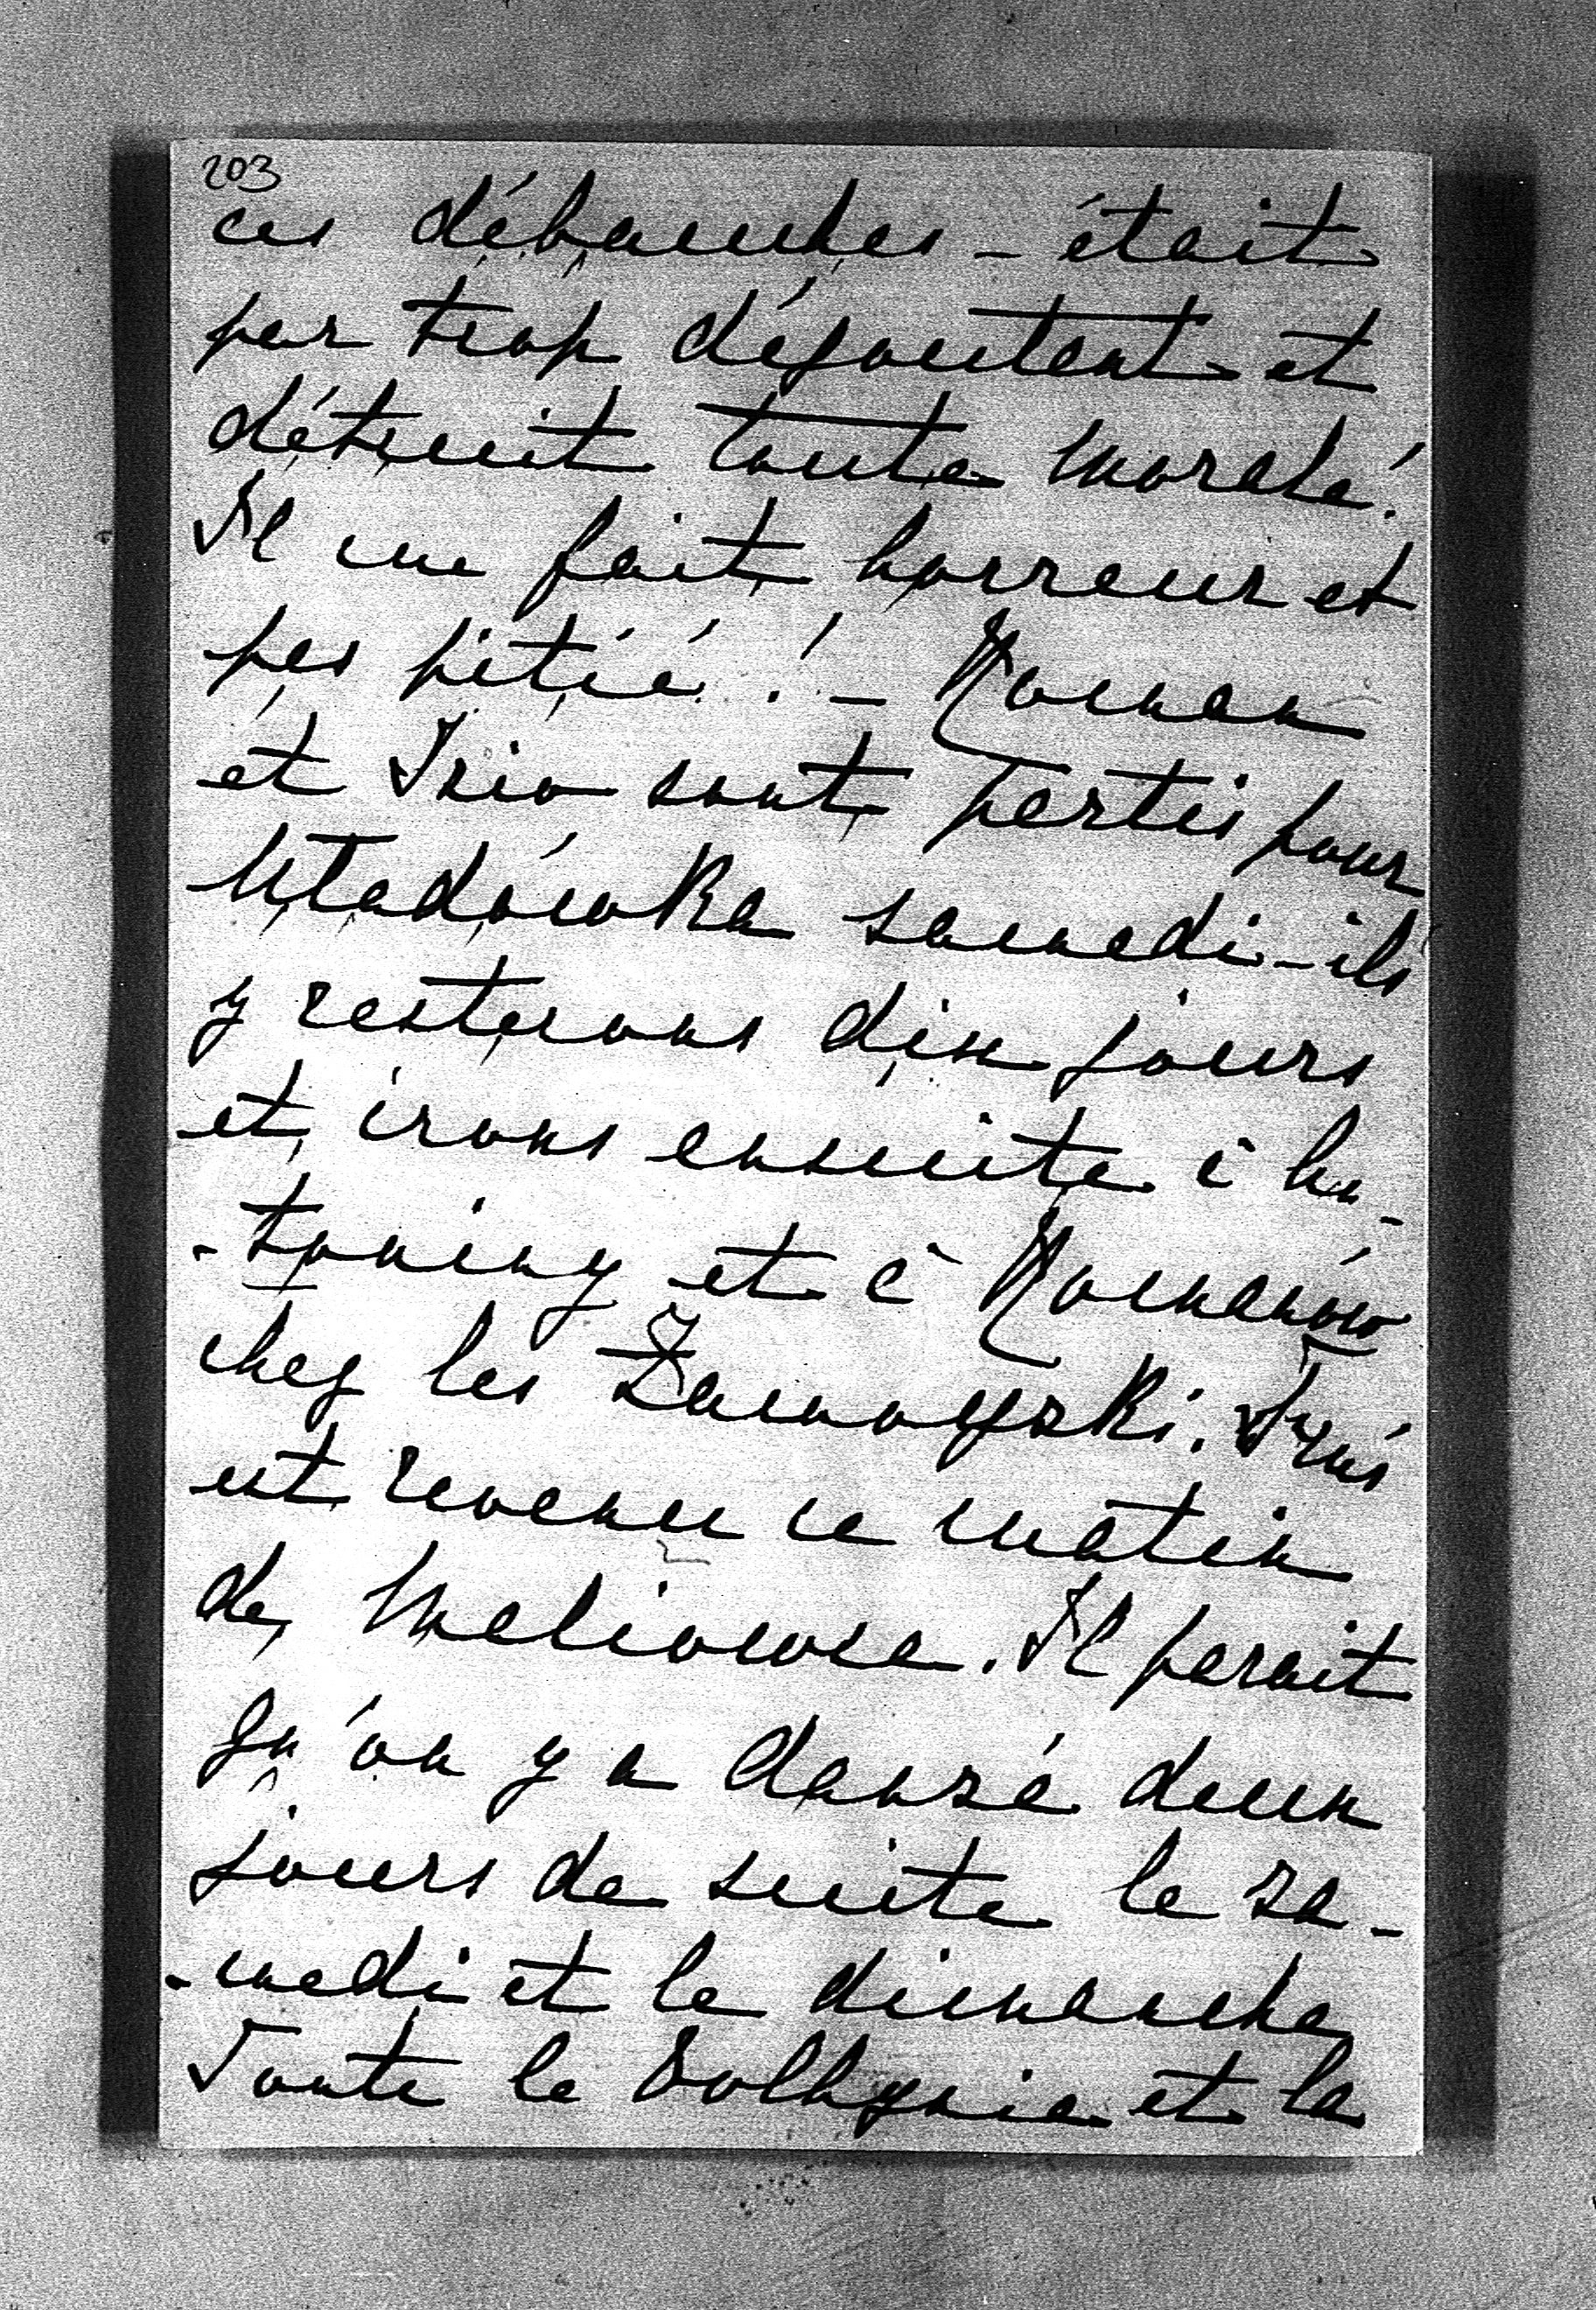 203
ces débauches - était
par trop dégoutant et
détruit toute morale!
Il me fait horreur et
pas pitié! - Roman
et Isio sont partis pour
Uładówka samedi - ils
y resterons dix jours
et irons ensuite à An-
-toniny et à Romanów
chez les Zamoyski.
est revenu ce matin
de Maliowce. Il parait
qu'on y a dansé deux
jours de suite le sa-
-medi et le dimanche
Toute la Volhynie et la